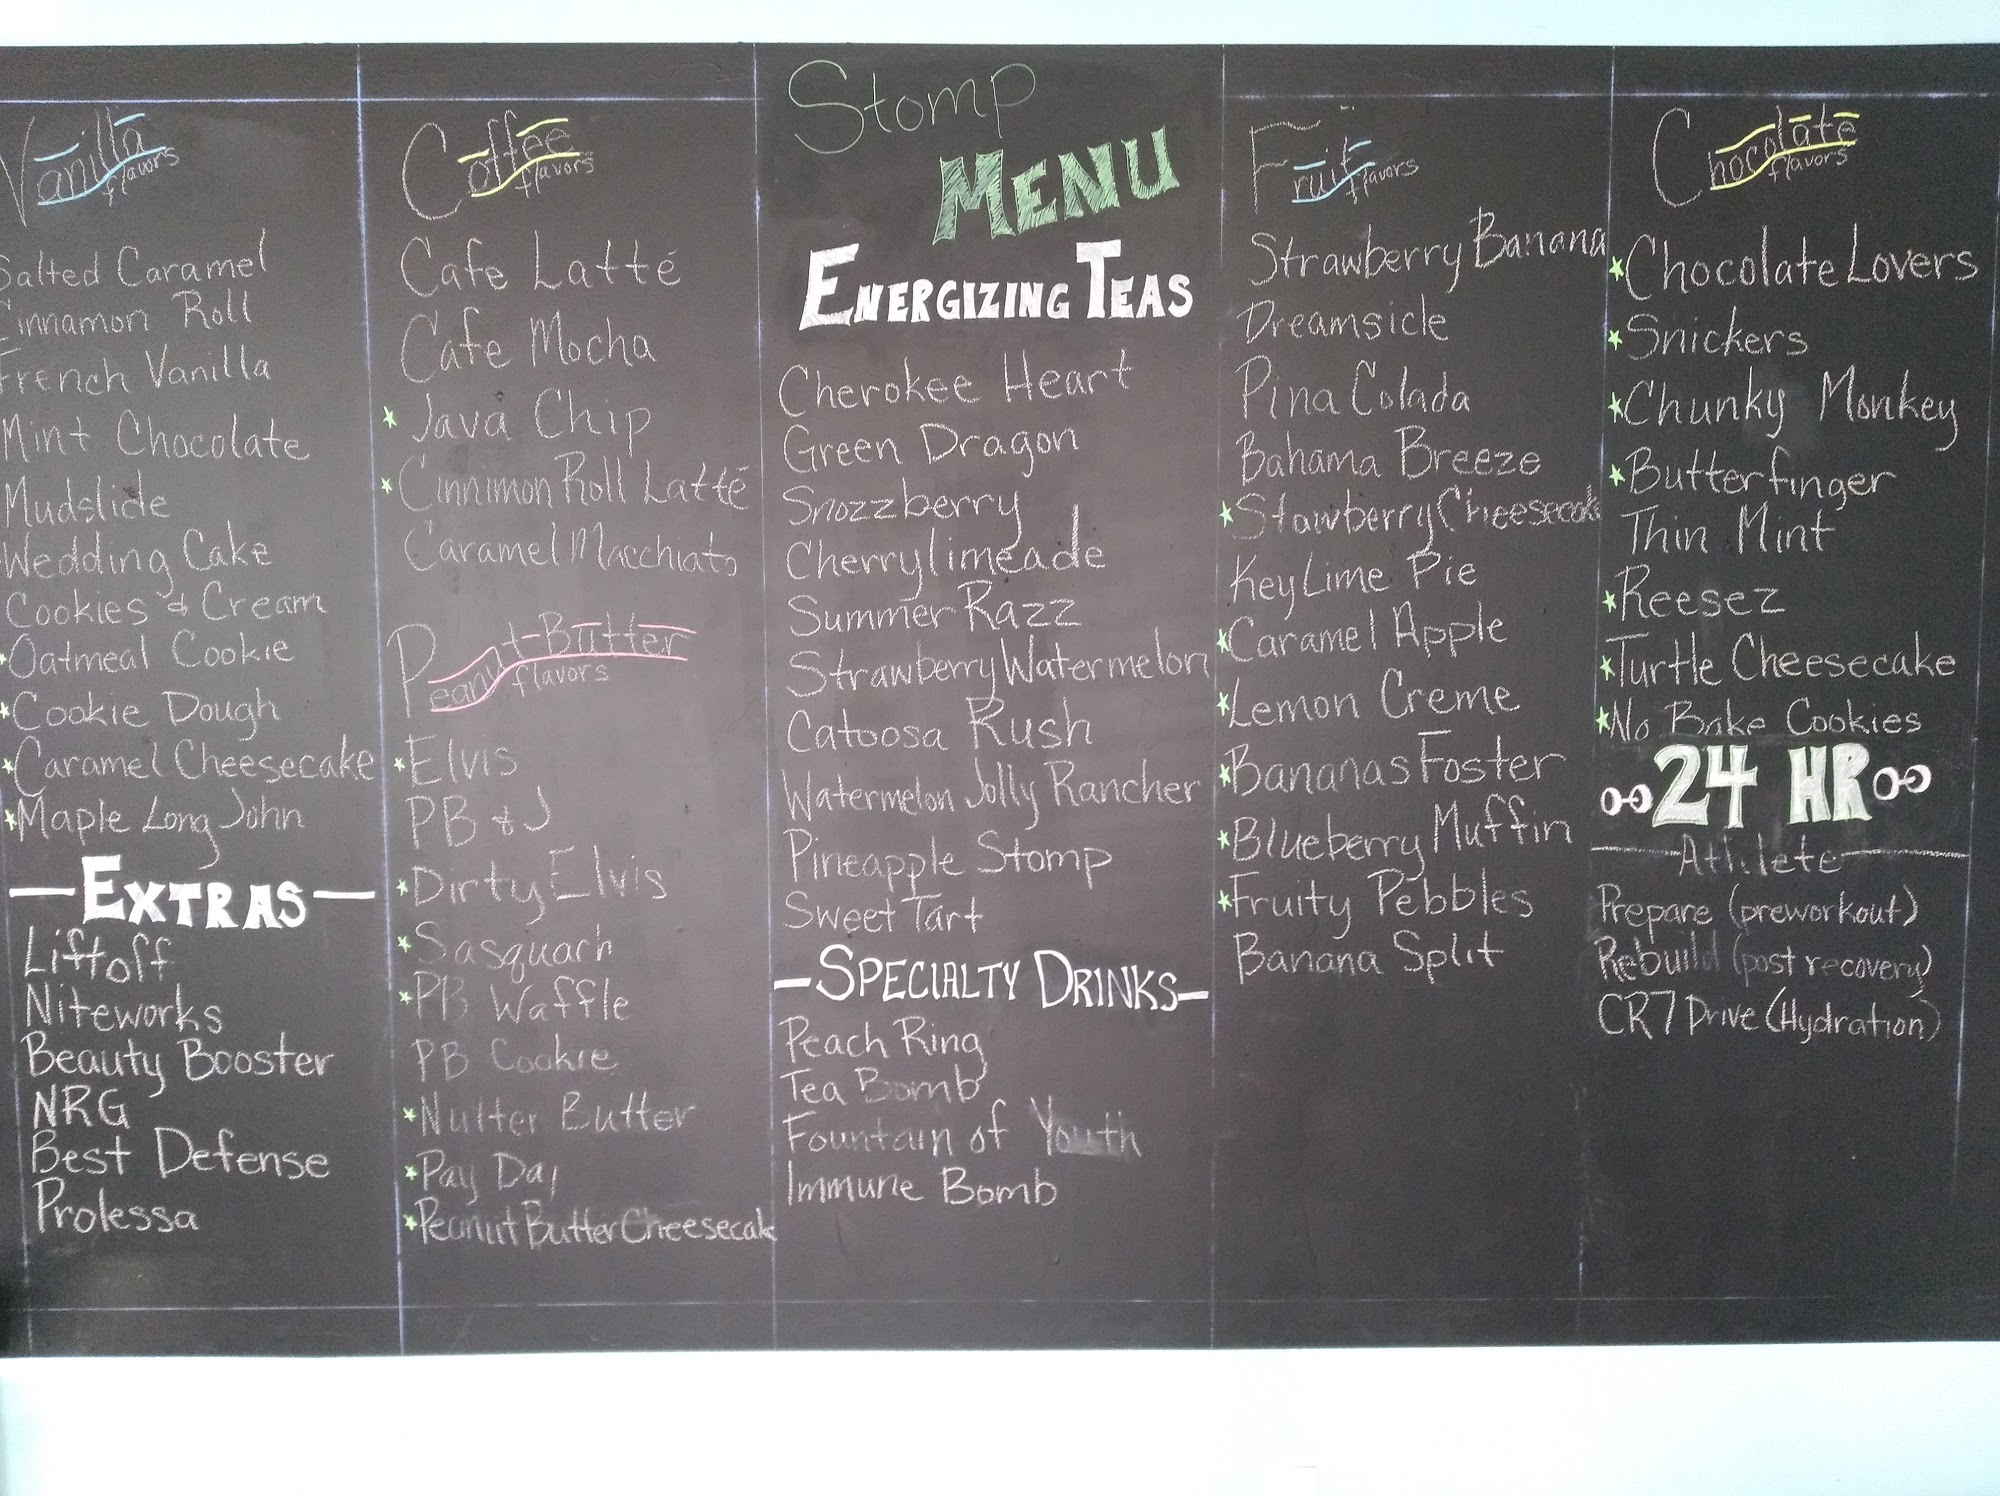 Vanilla
flavors
Salted Caramel
Cinnamon Roll
French Vanilla
Mint Chocolate
Mudslide
Wedding Cake
Cookies & Cream
Oatmeal Cookie
Cookie Dough
Caramel Cheesecake
Maple Long John
EXTRAS
Liftoff
Niteworks
Beauty Booster
NRG
Best Defense
Prolessa
Coffee
flavors
Cafe Latté
Cafe Mocha
Java Chip
Cinnimon Roll Latté
Caramel Macchiato
Peanut Butter
flavors
Elvis
PB & J
Dirty Elvis
Sasquach
PB Waffle
PB Cookie
Nutter Butter
Pay Day
Peanut Butter Cheesecake
Stomp
MENU
ENERGIZING TEAS
Cherokee Heart
Green Dragon
Snozzberry
Cherrylimeade
Summer Razz
Strawberry Watermelon
Catoosa Rush
Watermelon Jolly Rancher
Pineapple Stomp
Sweet Tart
SPECIALTY DRINKS
Peach Ring
Tea Bomb
Fountain of Youth
Immune Bomb
Fruit
flavors
Strawberry Banana
Dreamsicle
Pina Colada
Bahama Breeze
Stawberry Cheesecake
Key Lime Pie
Caramel Apple
Lemon Creme
Bananas Foster
Blueberry Muffin
Fruity Pebbles
Banana Split
Chocolate
flavors
Chocolate Lovers
Snickers
Chunky Monkey
Butterfinger
Thin Mint
Reesez
Turtle Cheesecake
No Bake Cookies
24 HR
Athlete
Prepare (preworkout)
Rebuild (post recovery)
CR7 Drive (Hydration)